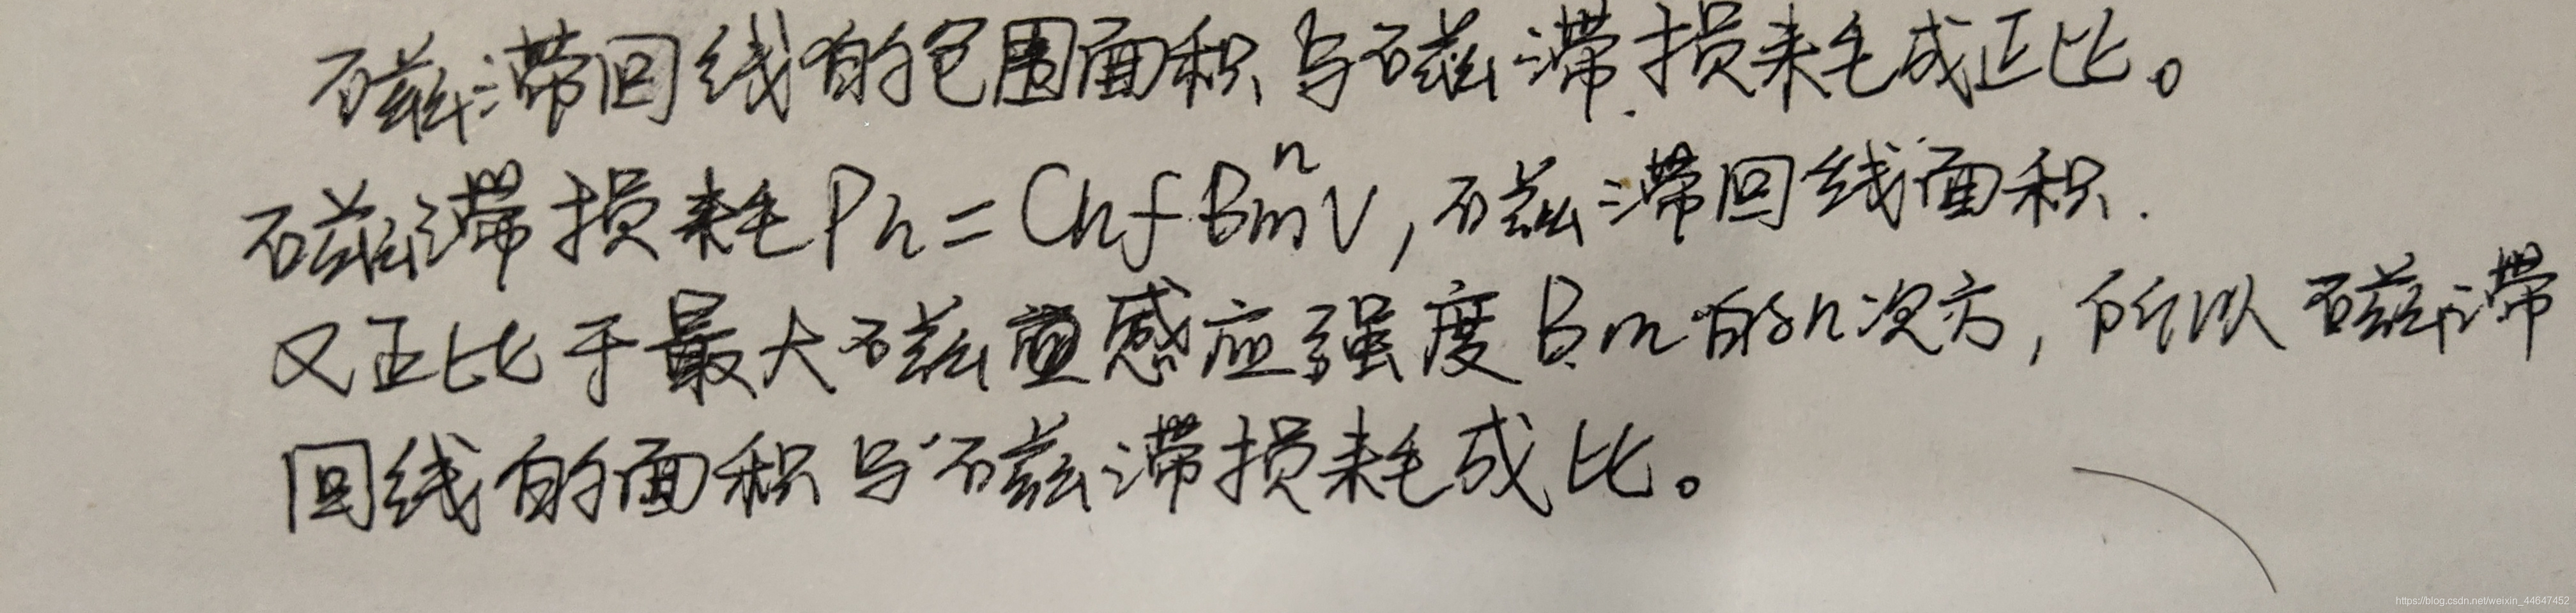 磁滞回线的包围面积与磁滞损耗成正比。
磁滞损耗Pn=Chf BmⁿV,磁滞回线面积.
又正比于最大磁感应强度Bm的n次方,所以磁滞
回线的面积与磁滞损耗成比。
https://blog.csdn.net/weixin_44647452